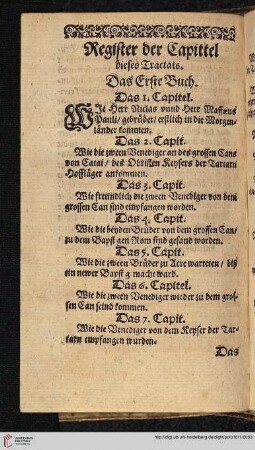 Register der Capittel
dieses Tractats.
Das Erste Buch.
Das 1. Capitel.
WJe Herr Niclas vnnd Herr Maffæus
Pauli/ gebrüder/ erstlich in die Morgen-
länder kommen.
Das 2. Capit.
Wie die zween Venediger an des grossen Cans
von Catai/ des Obristen Keysers der Tartarn
Hoffläger ankommen.
Das 3. Capit.
Wie freundlich die zween Venediger von dem
grossen Can sind empfangen worden.
Das 4. Capit.
Wie die beyden Brüder von dem grossen Can/
zu dem Bapst gen Rom sind gesand worden.
Das 5. Capit.
Wie die zween Brüder zu Acre warteten/ biß
ein newer Bapst gmacht ward.
Das 6. Capitel.
Wie die zween Venediger wieder zu dem gros-
sen Can seind kommen.
Das 7. Capit.
Wie die Venediger von dem Keyser der Tar-
tarn empfangen wurden.
Das